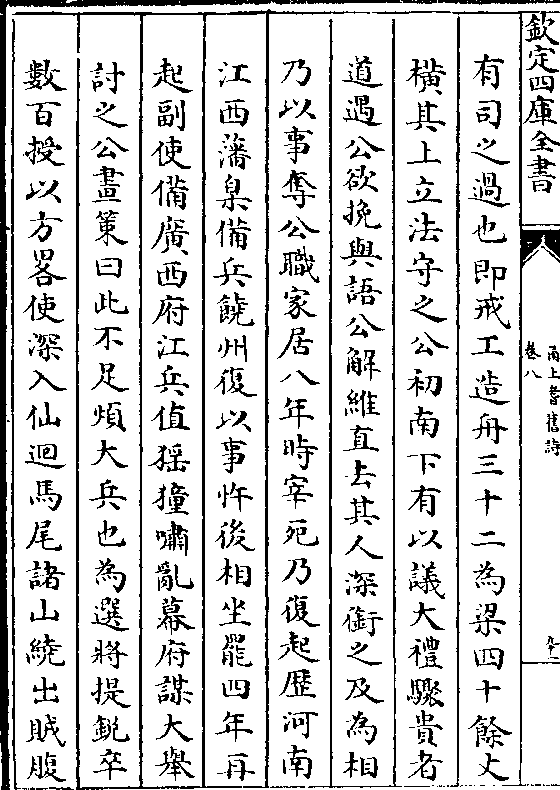 欽定四庫全書
甬上耆舊詩
卷八
有司之過也即戒工造舟三十二為梁四十餘丈
橫其上立法守之公初南下有以議大禮驟貴者
道遇公欲挽與語公解維直去其人深銜之及為相
乃以事奪公職家居八年時宰死乃復起歷河南
江西藩臬備兵饒州復以事忤後相坐罷四年再
起副使備廣西府江兵值猺獞嘯亂幕府謀大舉
討之公畫策曰此不足煩大兵也為選將提銳卒
數百授以方畧使深入仙迴馬尾諸山繞出賊腹